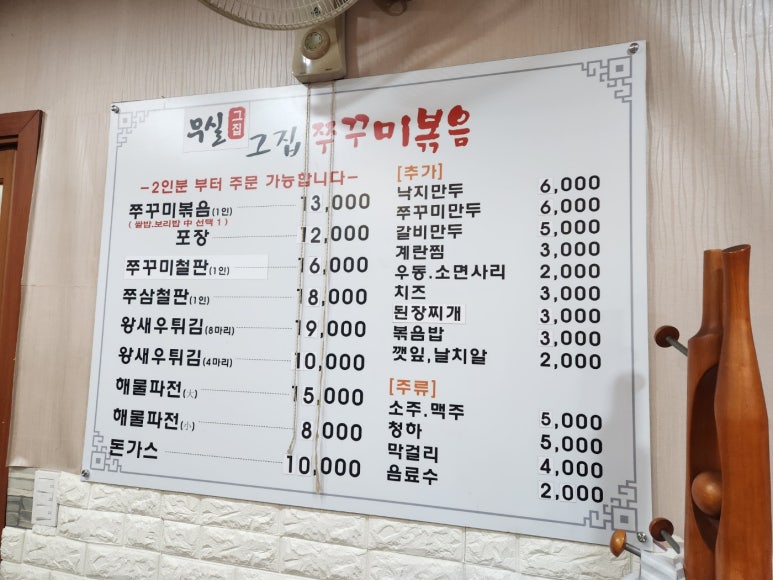 무실 그집
그집 쭈꾸미볶음
-2인분 부터 주문 가능합니다-
쭈꾸미볶음(1인) 13,000
(쌀밥.보리밥 中 선택 1)
포장 12,000
쭈꾸미철판(1인) 16,000
쭈삼철판(1인) 18,000
왕새우튀김(8마리) 19,000
왕새우튀김(4마리) 10,000
해물파전(大) 15,000
해물파전(小) 8,000
돈가스 10,000
[추가]
낙지만두 6,000
쭈꾸미만두 6,000
갈비만두 5,000
계란찜 3,000
우동.소면사리 2,000
치즈 3,000
된장찌개 3,000
볶음밥 3,000
깻잎,날치알 2,000
[주류]
소주.맥주 5,000
청하 5,000
막걸리 4,000
음료수 2,000